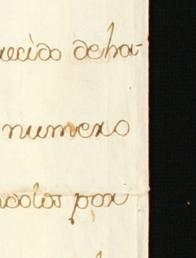 ecido deha-
numero
dolos por